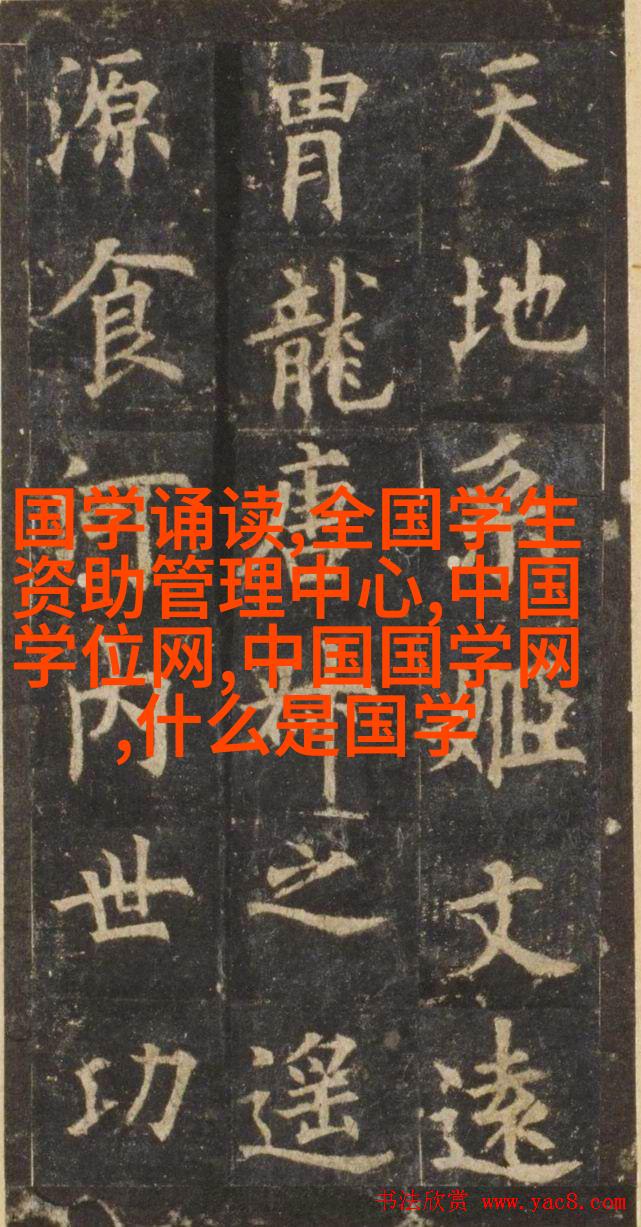 天地系姬文遠
胄龍唐之遥
源食河内世功
国学诵读,全国学生
资助管理中心,中国
学位网,中国国学网
,什么是国学
书法欣赏 www.yac8.com